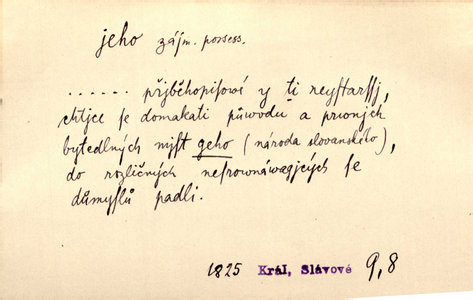 jeho zájm. possess.
...... přjběhopisowé y ti neystarssj,
chtjce se domakati půwodu a prwnjch
bytedlných mjst geho (národa slovanského),
do rozličných nesrownáwagjcých se
důmyslů padli.
1825 Král, Slávové 9,8